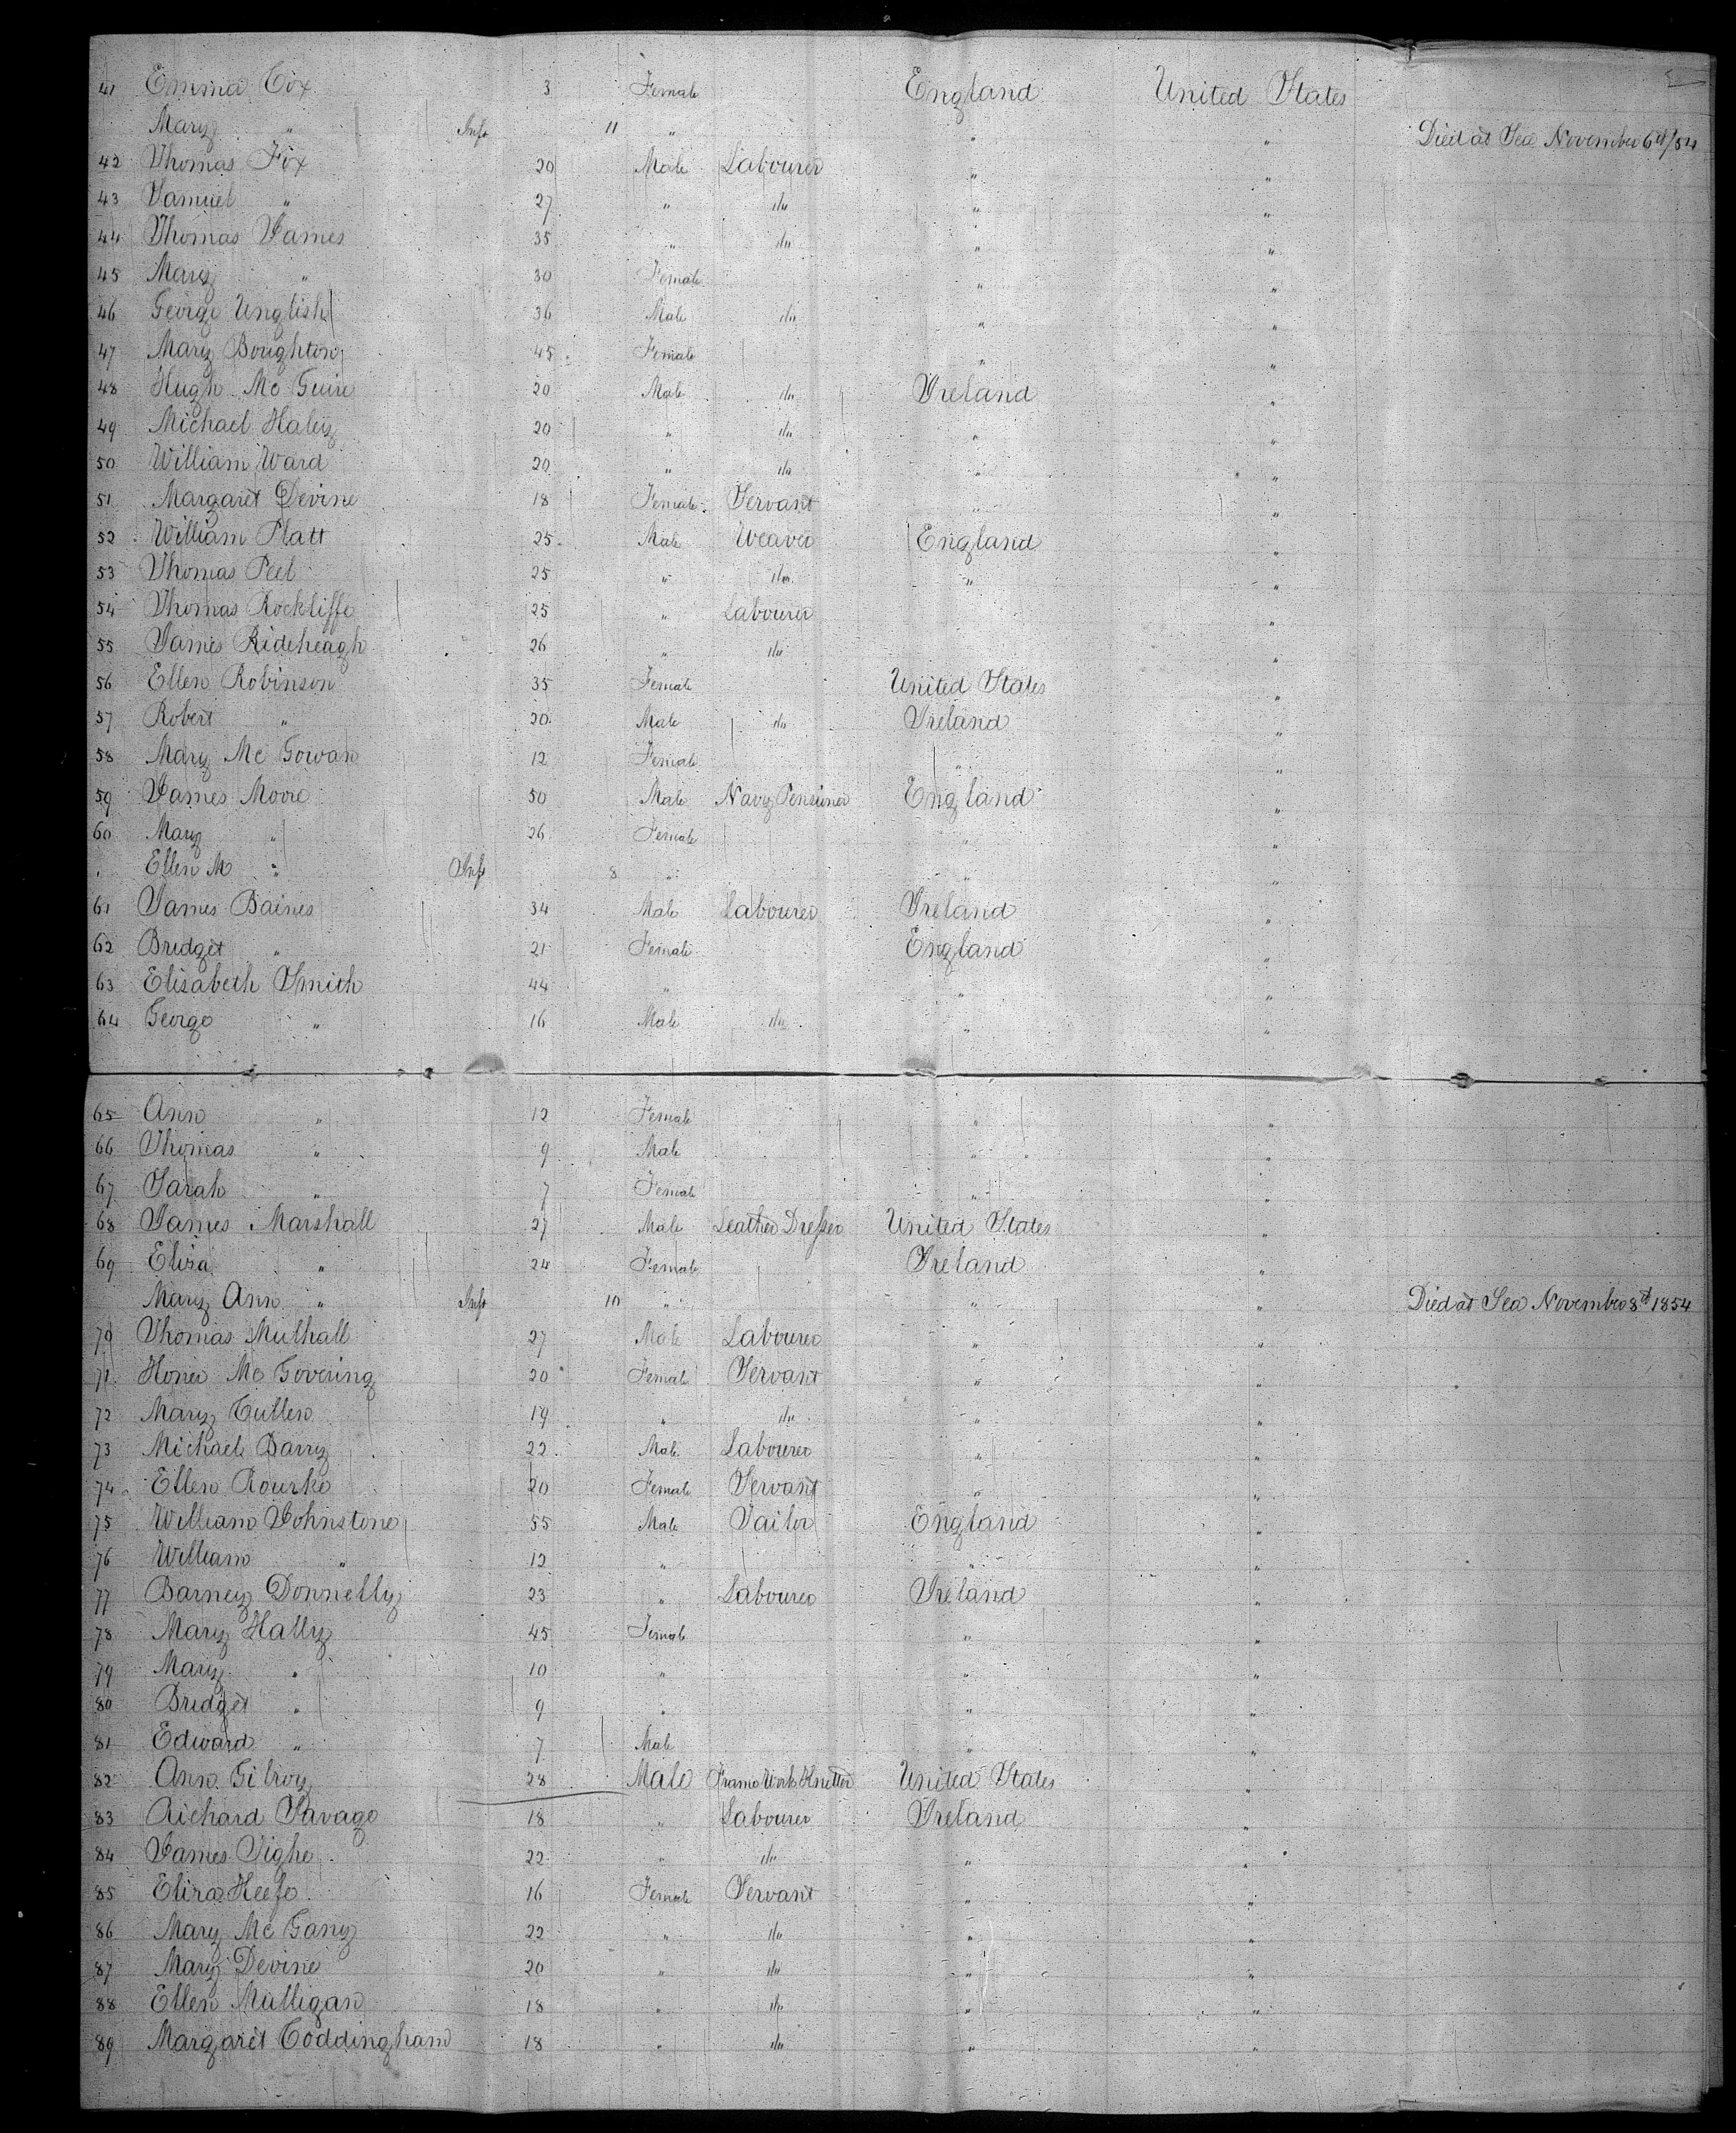 41 Emma Cox 3 Female England United States
Mary " Inft 11 " " " Died at Sea November 6th/54
42 Thomas Fox 20 Male Labourer " "
43 Samuel " 27 " do " "
44 Thomas James 35 " do " "
45 Mary " 30 Female " "
46 George Unglish 36 Male do " "
47 Mary Boughton 45 Female " "
48 Hugh Mc Guire 20 Male do Ireland "
49 Michael Haley 20 " do " "
50 William Ward 20 " do " "
51 Margaret Devine 18 Female Servant " "
52 William Platt 25 Male Weaver England "
53 Thomas Peel 25 " do " "
54 Thomas Rockliffe 25 " Labourer "
55 James Rideheagh 26 " do "
56 Ellen Robinson 35 Female United States "
57 Robert " 20 Male do Ireland "
58 Mary Mc Gowan 12 Female " "
59 James Moore 50 Male Navy Pensioner England "
60 Mary " 26 Female " "
Ellen M " Inft 8 " " "
61 James Baines 34 Male Labourer Ireland "
62 Bridget " 21 Female England "
63 Elisabeth Smith 44 " " "
64 George " 16 Male do " "
65 Ann " 12 Female " "
66 Thomas " 9 Male " "
67 Sarah " 7 Female " "
68 James Marshall 27 Male Leather Dresser United States "
69 Eliza " 24 Female Ireland "
Mary Ann " Inft 10 " " " Died at Sea November 8th 1854
70 Thomas Mulhall 27 Male Labourer " "
71 Honer Mc Govering 20 Female Servant " "
72 Mary Cullen 19 " do " "
73 Michael Barry 22 Male Labourer " "
74 Ellen Rourke 20 Female Servant " "
75 William Johnstone 55 Male Tailor England "
76 William " 12 " " "
77 Barney Donnelly 23 " Labourer Ireland "
78 Mary Hally 45 Female " "
79 Mary " 10 " " "
80 Bridget " 9 " " "
81 Edward " 7 Male " "
82 Ann Gilroy 28 Male Frame Work Knitter United States "
83 Richard Savage 18 " Labourer Ireland "
84 James Tighe 22 " do " "
85 Eliza Keefe 16 Female Servant " "
86 Mary Mc Gany 22 " do " "
87 Mary Devine 20 " do " "
88 Ellen Mulligan 18 " do " "
89 Margaret Coddingham 18 " do " "